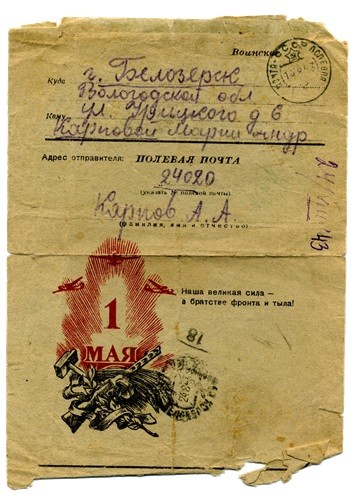 Воинское
Куда г. Белозерск
Вологодской обл
ул. Урицкого д 6
Кому Карповой Марии
Адрес отправителя: ПОЛЕВАЯ ПОЧТА
24020
(указать № полевой почты)
Карпов А. А.
(фамилия, имя и отчество)
24/VIII 43
Наша великая сила —
в братстве фронта и тыла!
1
МАЯ
18